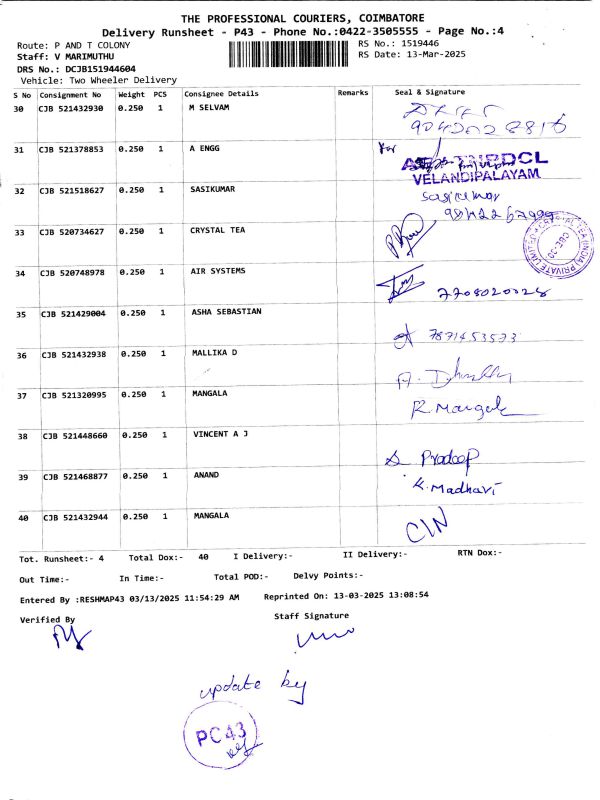 THE PROFESSIONAL COURIERS, COIMBATORE
Delivery Runsheet - P43 - Phone No.:0422-3505555 - Page No.:4
Route: P AND T COLONY
RS No.: 1519446
Staff: V MARIMUTHU
RS Date: 13-Mar-2025
DRS No.: DCJB151944604
Vehicle: Two Wheeler Delivery
S No Consignment No Weight PCS Consignee Details Remarks Seal & Signature
30 CJB 521432930 0.250 1 M SELVAM
9042028816
31 CJB 521378853 1 A ENGG
For
TNPDCL
VELANDIPALAYAM
32 CJB 521518627 0.250 1 SASIKUMAR
Sasikumar
33 CJB 520734627 0.250 1 CRYSTAL TEA
CRYSTAL TEA (INDIA) PRIVATE LIMITED
CBE-30
34 CJB 520748978 0.250 1 AIR SYSTEMS
7708020028
35 CJB 521429004 0.250 1 ASHA SEBASTIAN
7871453573
36 CJB 521432938 0.250 1 MALLIKA D
37 CJB 521320995 0.250 1 MANGALA
R. Mangala
38 CJB 521448660 0.250 1 VINCENT A J
Pradeep
39 CJB 521468877 0.250 1 ANAND
K. Madhavi
40 CJB 521432944 0.250 1 MANGALA
Tot. Runsheet:- 4 Total Dox:- 40 I Delivery:- II Delivery:- RTN Dox:-
Out Time:- In Time:- Total POD:- Delvy Points:-
Entered By :RESHMAP43 03/13/2025 11:54:29 AM Reprinted On: 13-03-2025 13:08:54
Verified By
Staff Signature
update by
PC43